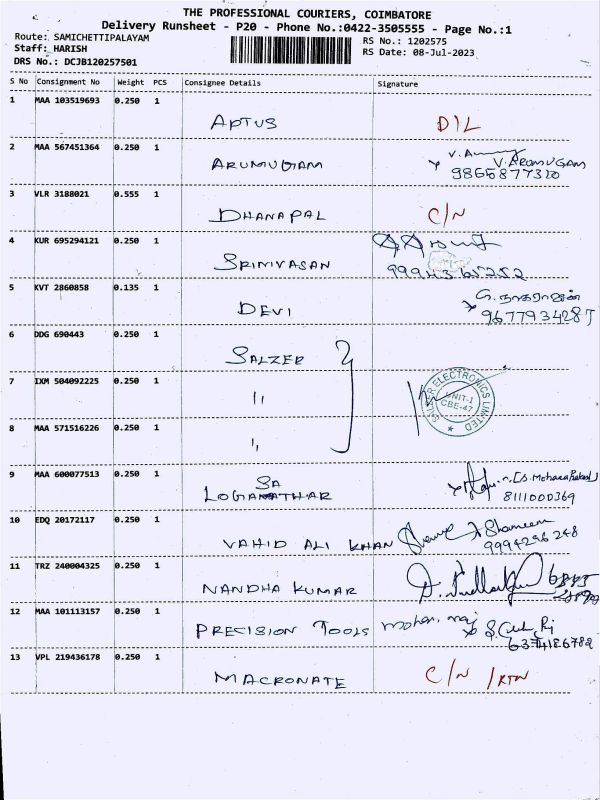 THE PROFESSIONAL COURIERS, COIMBATORE
Delivery Runsheet - P20 - Phone No.:0422-3505555 - Page No.:1
Route: SAMICHETTIPALAYAM
RS No.: 1202575
Staff: HARISH
RS Date: 08-Jul-2023
DRS No.: DCJB120257501
S No Consignment No Weight PCS Consignee Details Signature
1 MAA 103519693 0.250 1
APTUS D/L
2 MAA 567451364 0.250 1
ARUMUGAM V. AROMUGAM
9865877320
3 VLR 3188021 0.555 1
DHANAPAL C/N
4 KUR 695294121 0.250 1
SRINIVASAN
5 KVT 2860858 0.135 1
DEVI G. நாகராஜன்
9677934287
6 DDG 690443 0.250 1
SALZER
7 IXM 504092225 0.250 1
11
SALZER ELECTRONICS LIMITED
UNIT-I
CBE-47
8 MAA 571516226 0.250 1
11
9 MAA 600077513 0.250 1
SA
LOGANATHAR
8111000369
10 EDQ 20172117 0.250 1
VAHID ALI KHAN Shameem
9994296248
11 TRZ 240004325 0.250 1
NANDHA KUMAR
12 MAA 101113157 0.250 1
PRECISION TOOLS mohan raj
6374186782
13 VPL 219436178 0.250 1
MACRONATE C/N /RTN